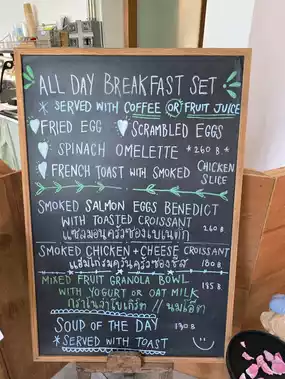 ALL DAY BREAKFAST SET
* SERVED WITH COFFEE OR FRUIT JUICE
FRIED EGG SCRAMBLED EGGS
SPINACH OMELETTE *260 B*
FRENCH TOAST WITH SMOKED CHICKEN SLICE
SMOKED SALMON EGGS BENEDICT
WITH TOASTED CROISSANT
260 B
SMOKED CHICKEN + CHEESE CROISSANT
180 B
MIXED FRUIT GRANOLA BOWL
WITH YOGURT OR OAT MILK 185 B
กราโนล่าโยเกิร์ต // นมโอ๊ต
SOUP OF THE DAY 130 B
* SERVED WITH TOAST